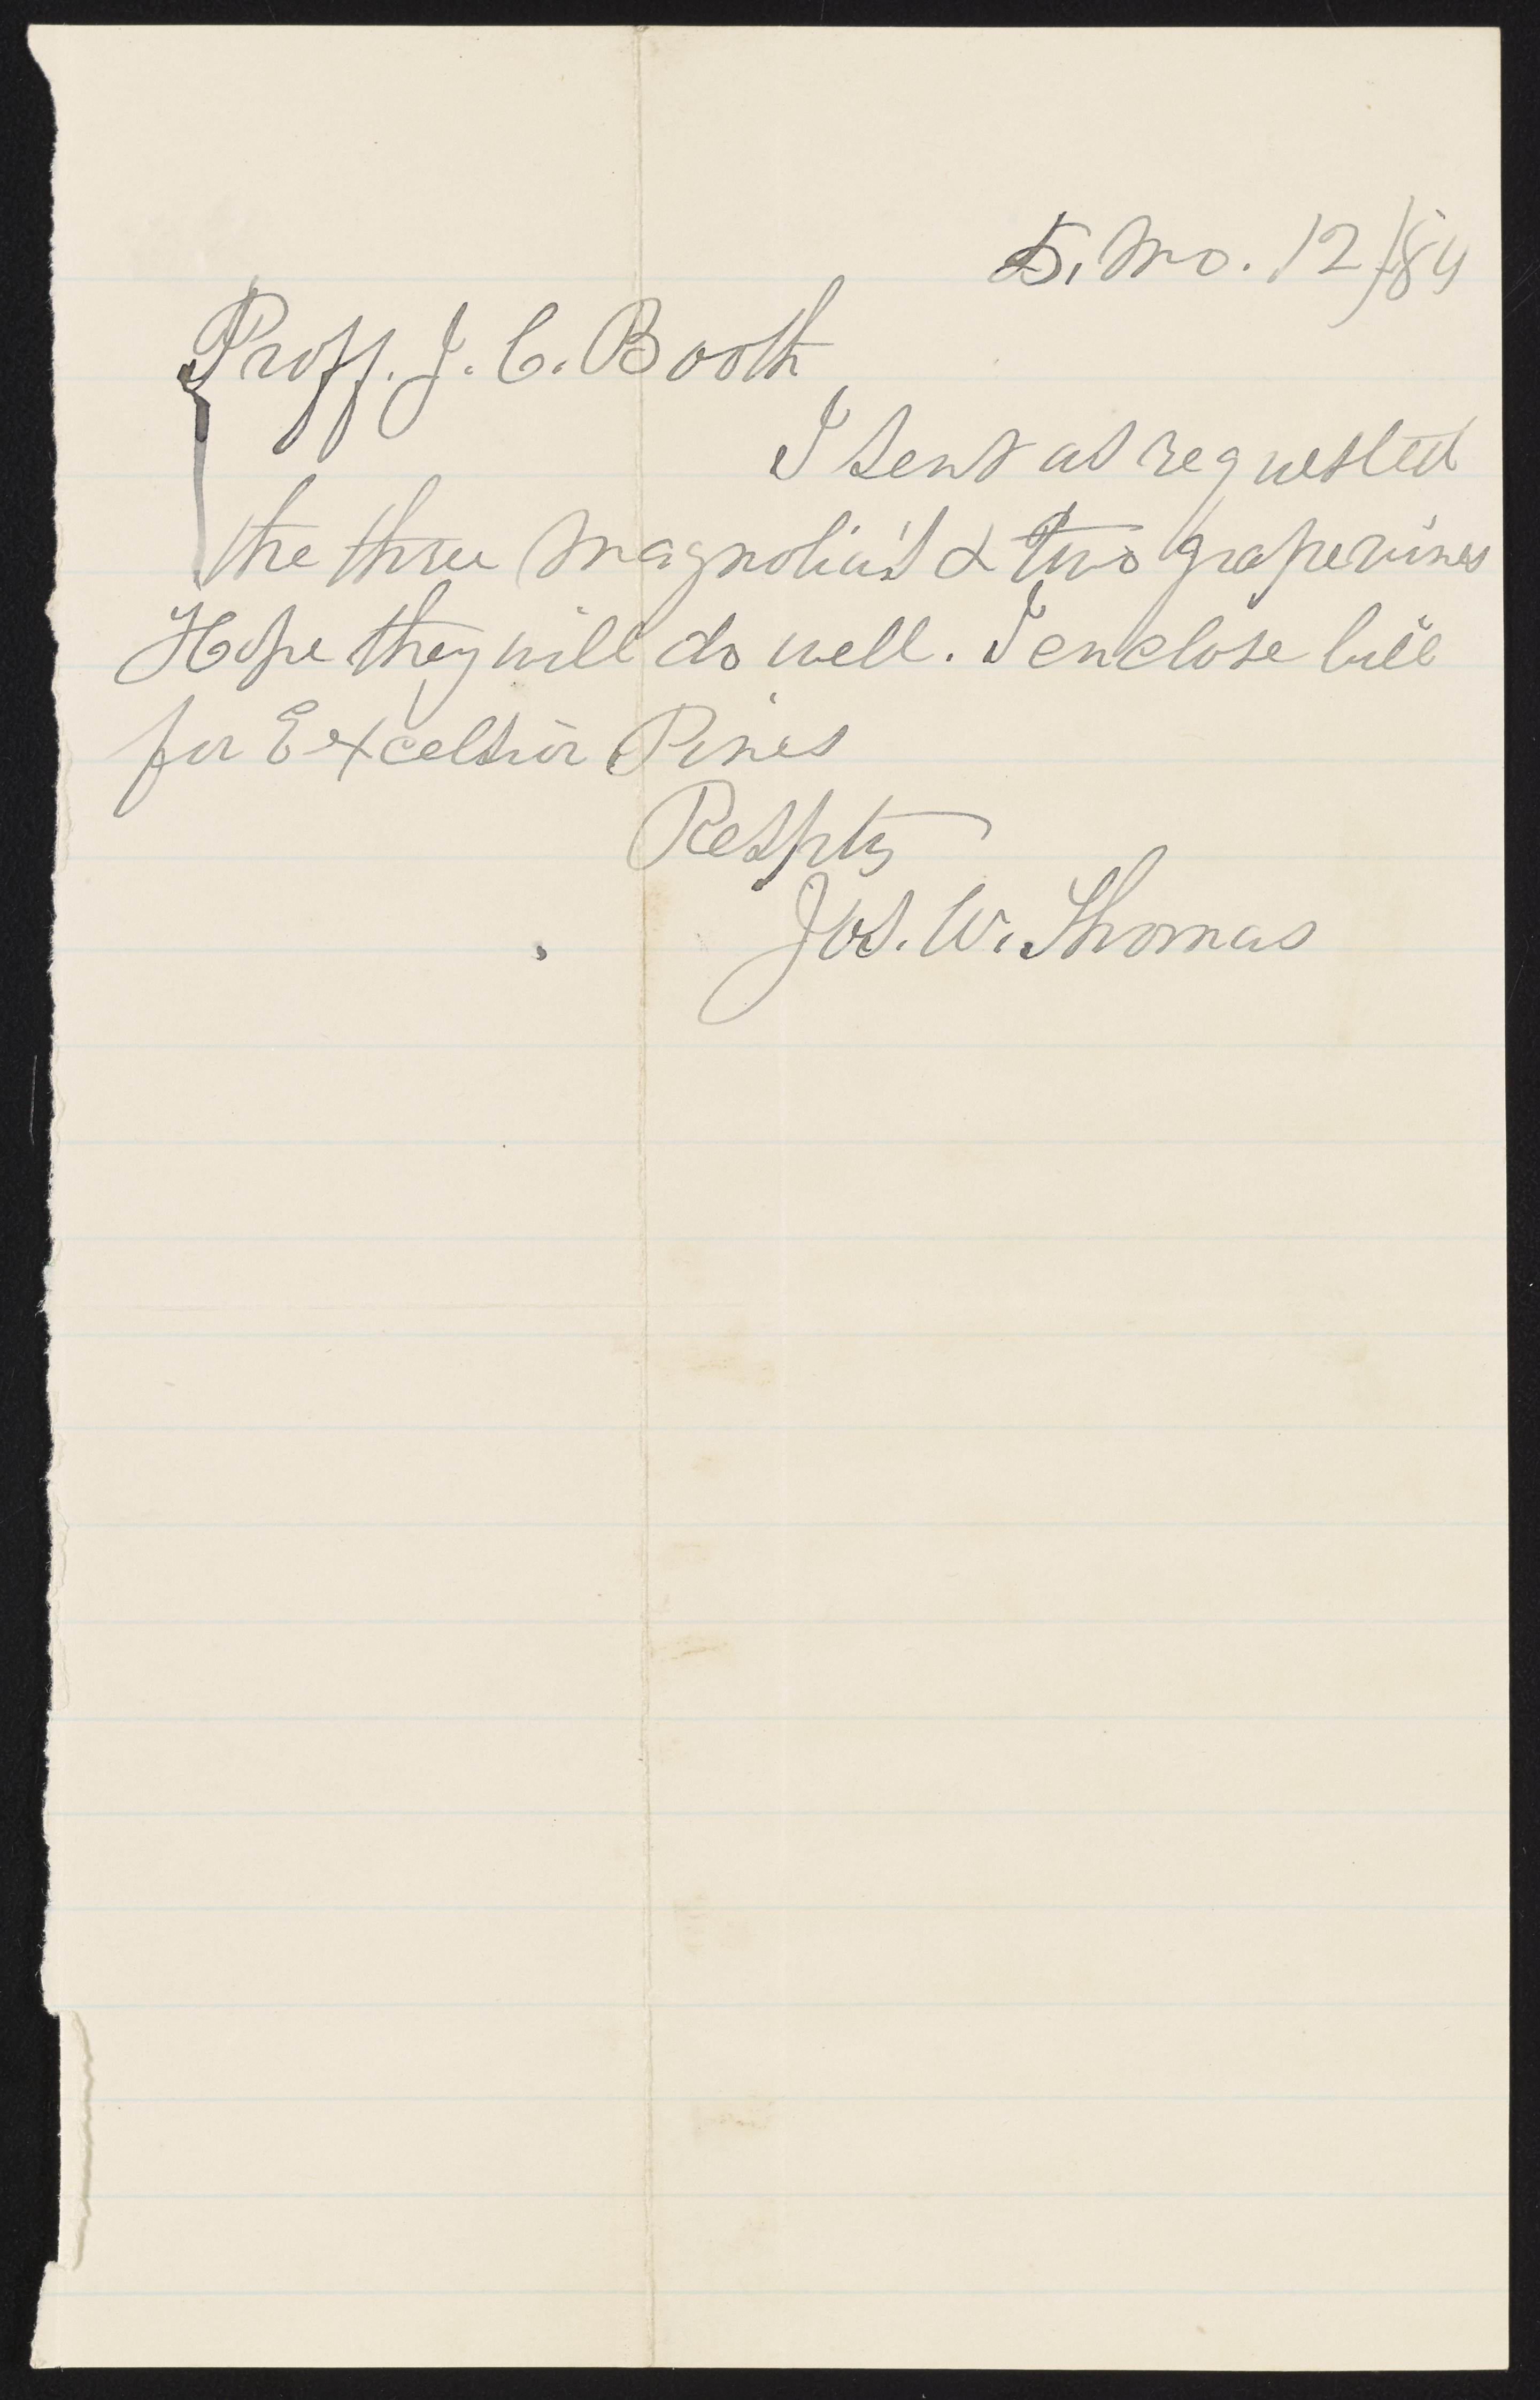 5. Mo. 12/84
Proff. J. C. Booth
I sent as requested
the three Magnolia's & two grapevines
Hope they will do well. I enclose bill
for Excelsior Pines
Respty
Jos. W. Thomas